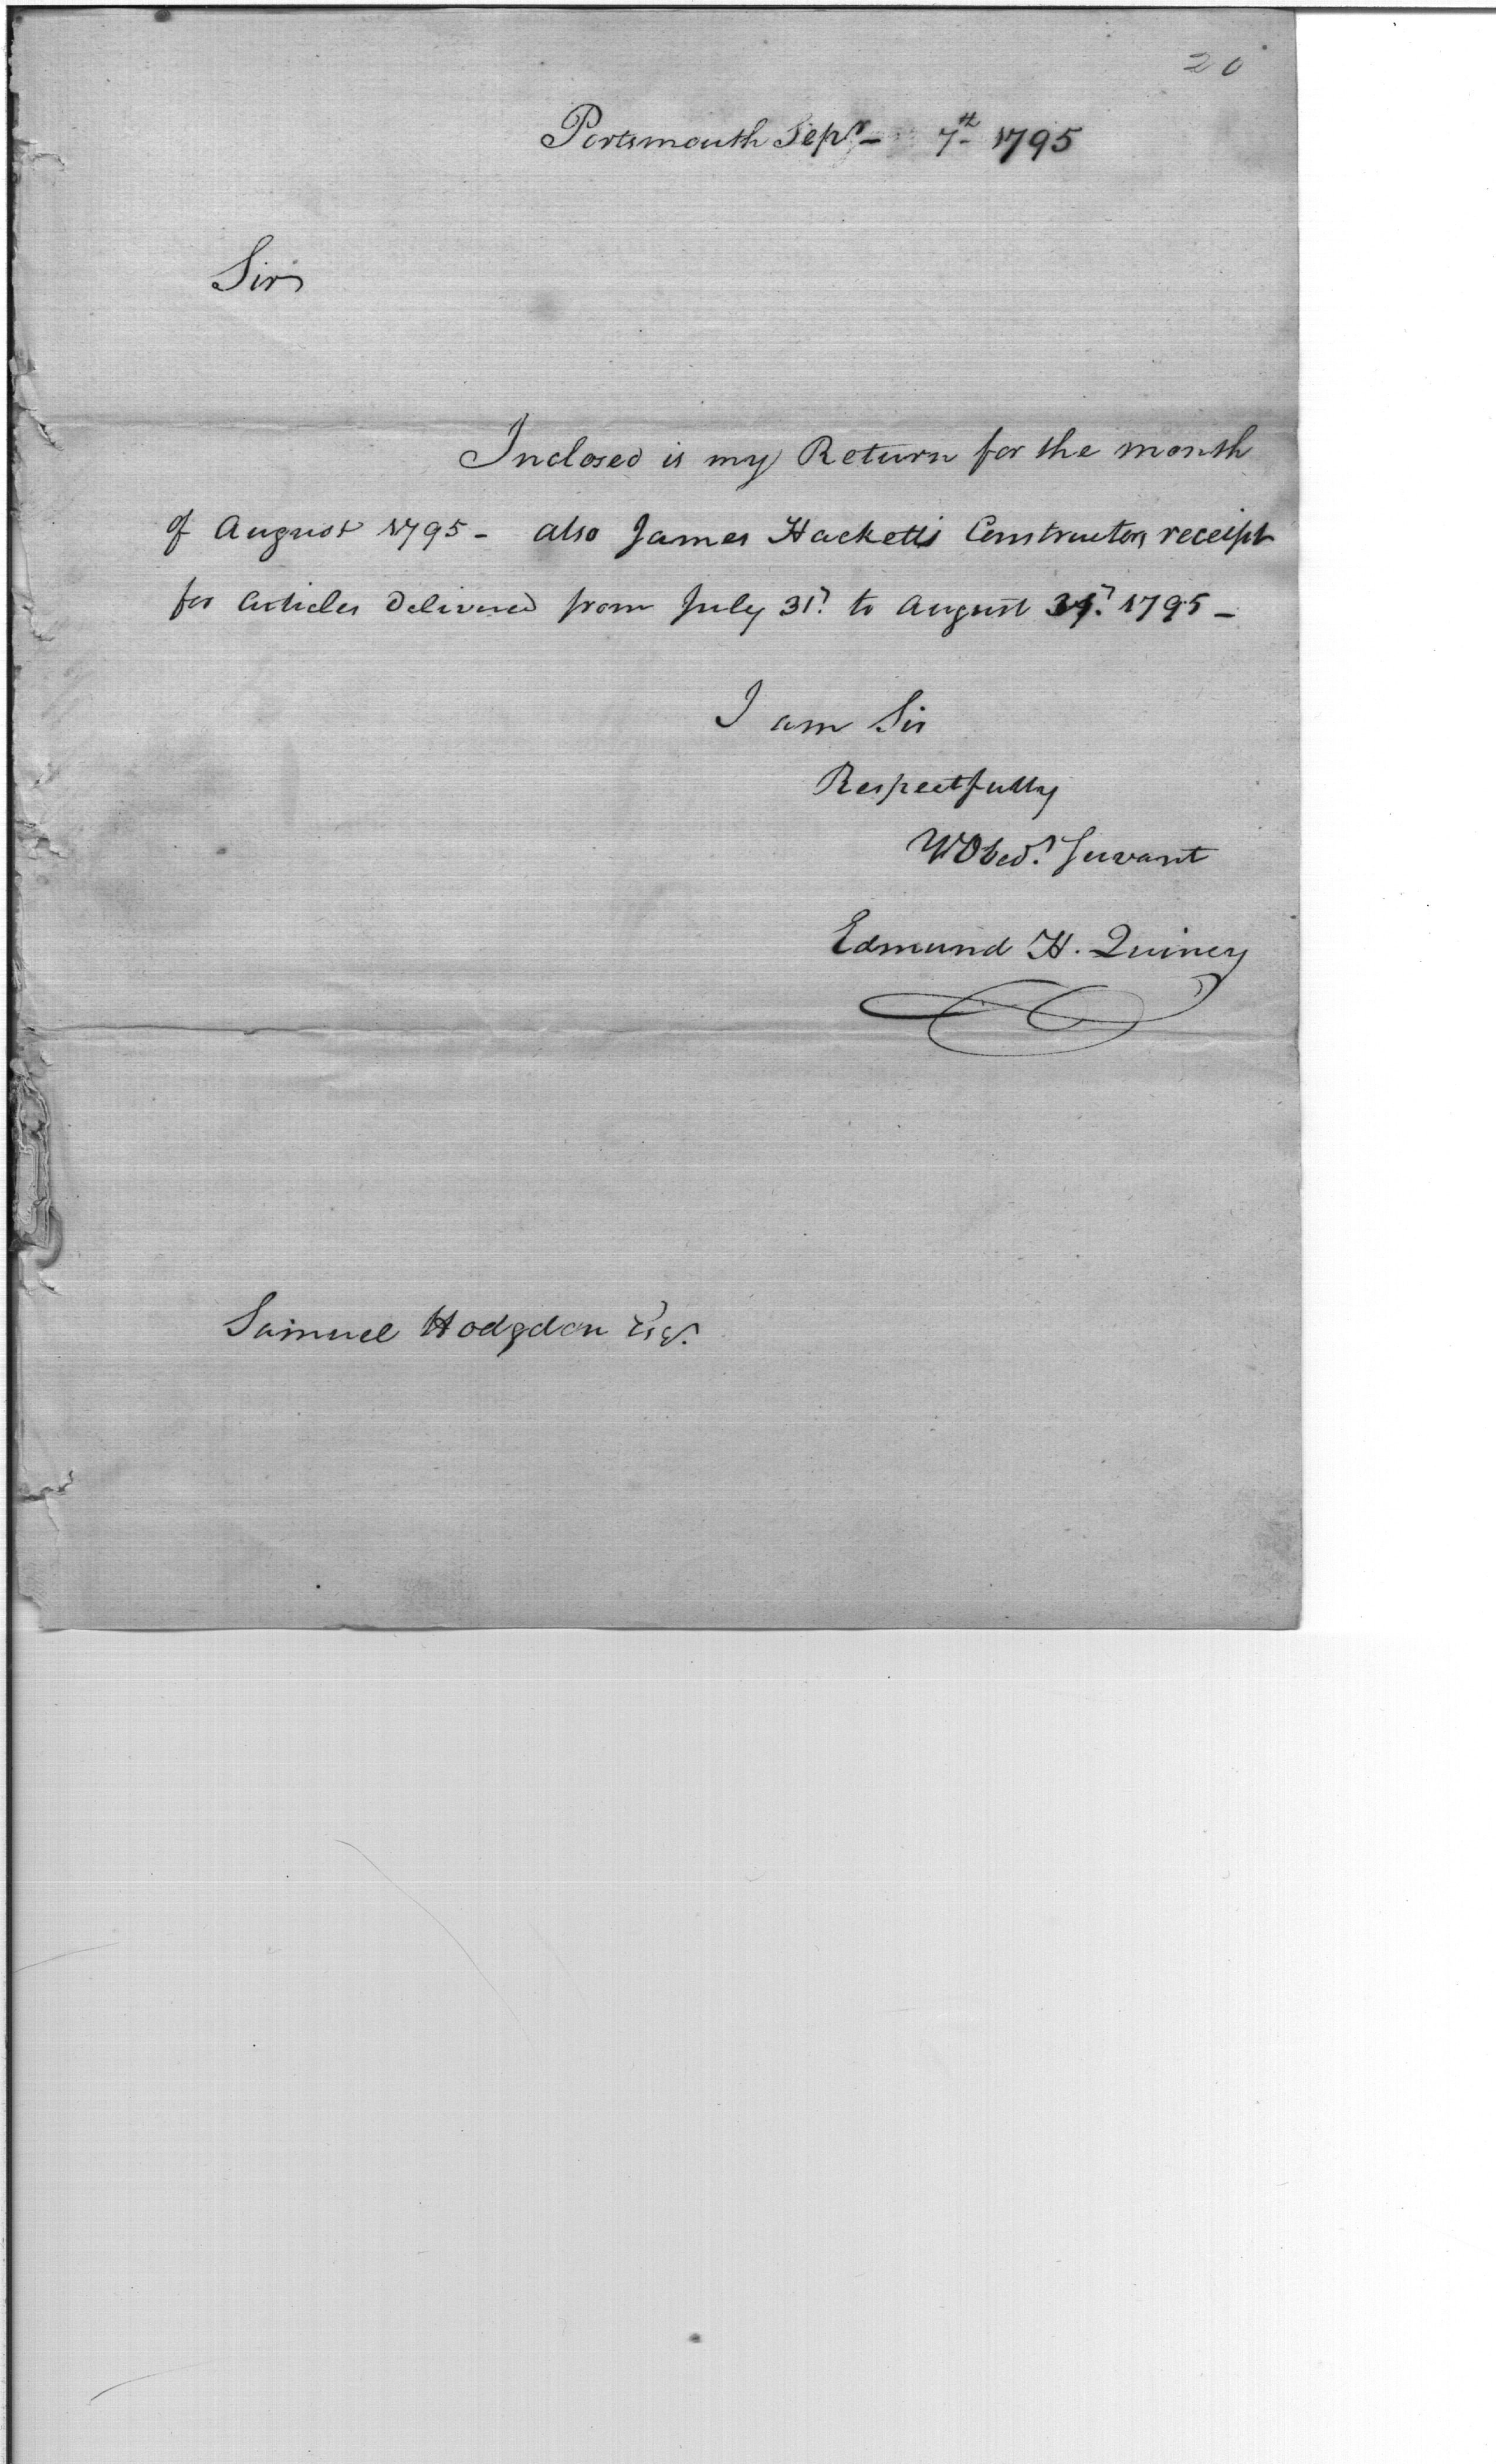 20
Portsmouth Sepr - 7th 1795
Sir
Inclosed is my Return for the month
of August 1795 - also James Hacketts Constructors receipt
for Articles Delivered from July 31st. to August 31st. 1795 -
I am Sir
Respectfully
Obedt. Servant
Edmund H. Quincy
Samuel Hodgdon Esqr.